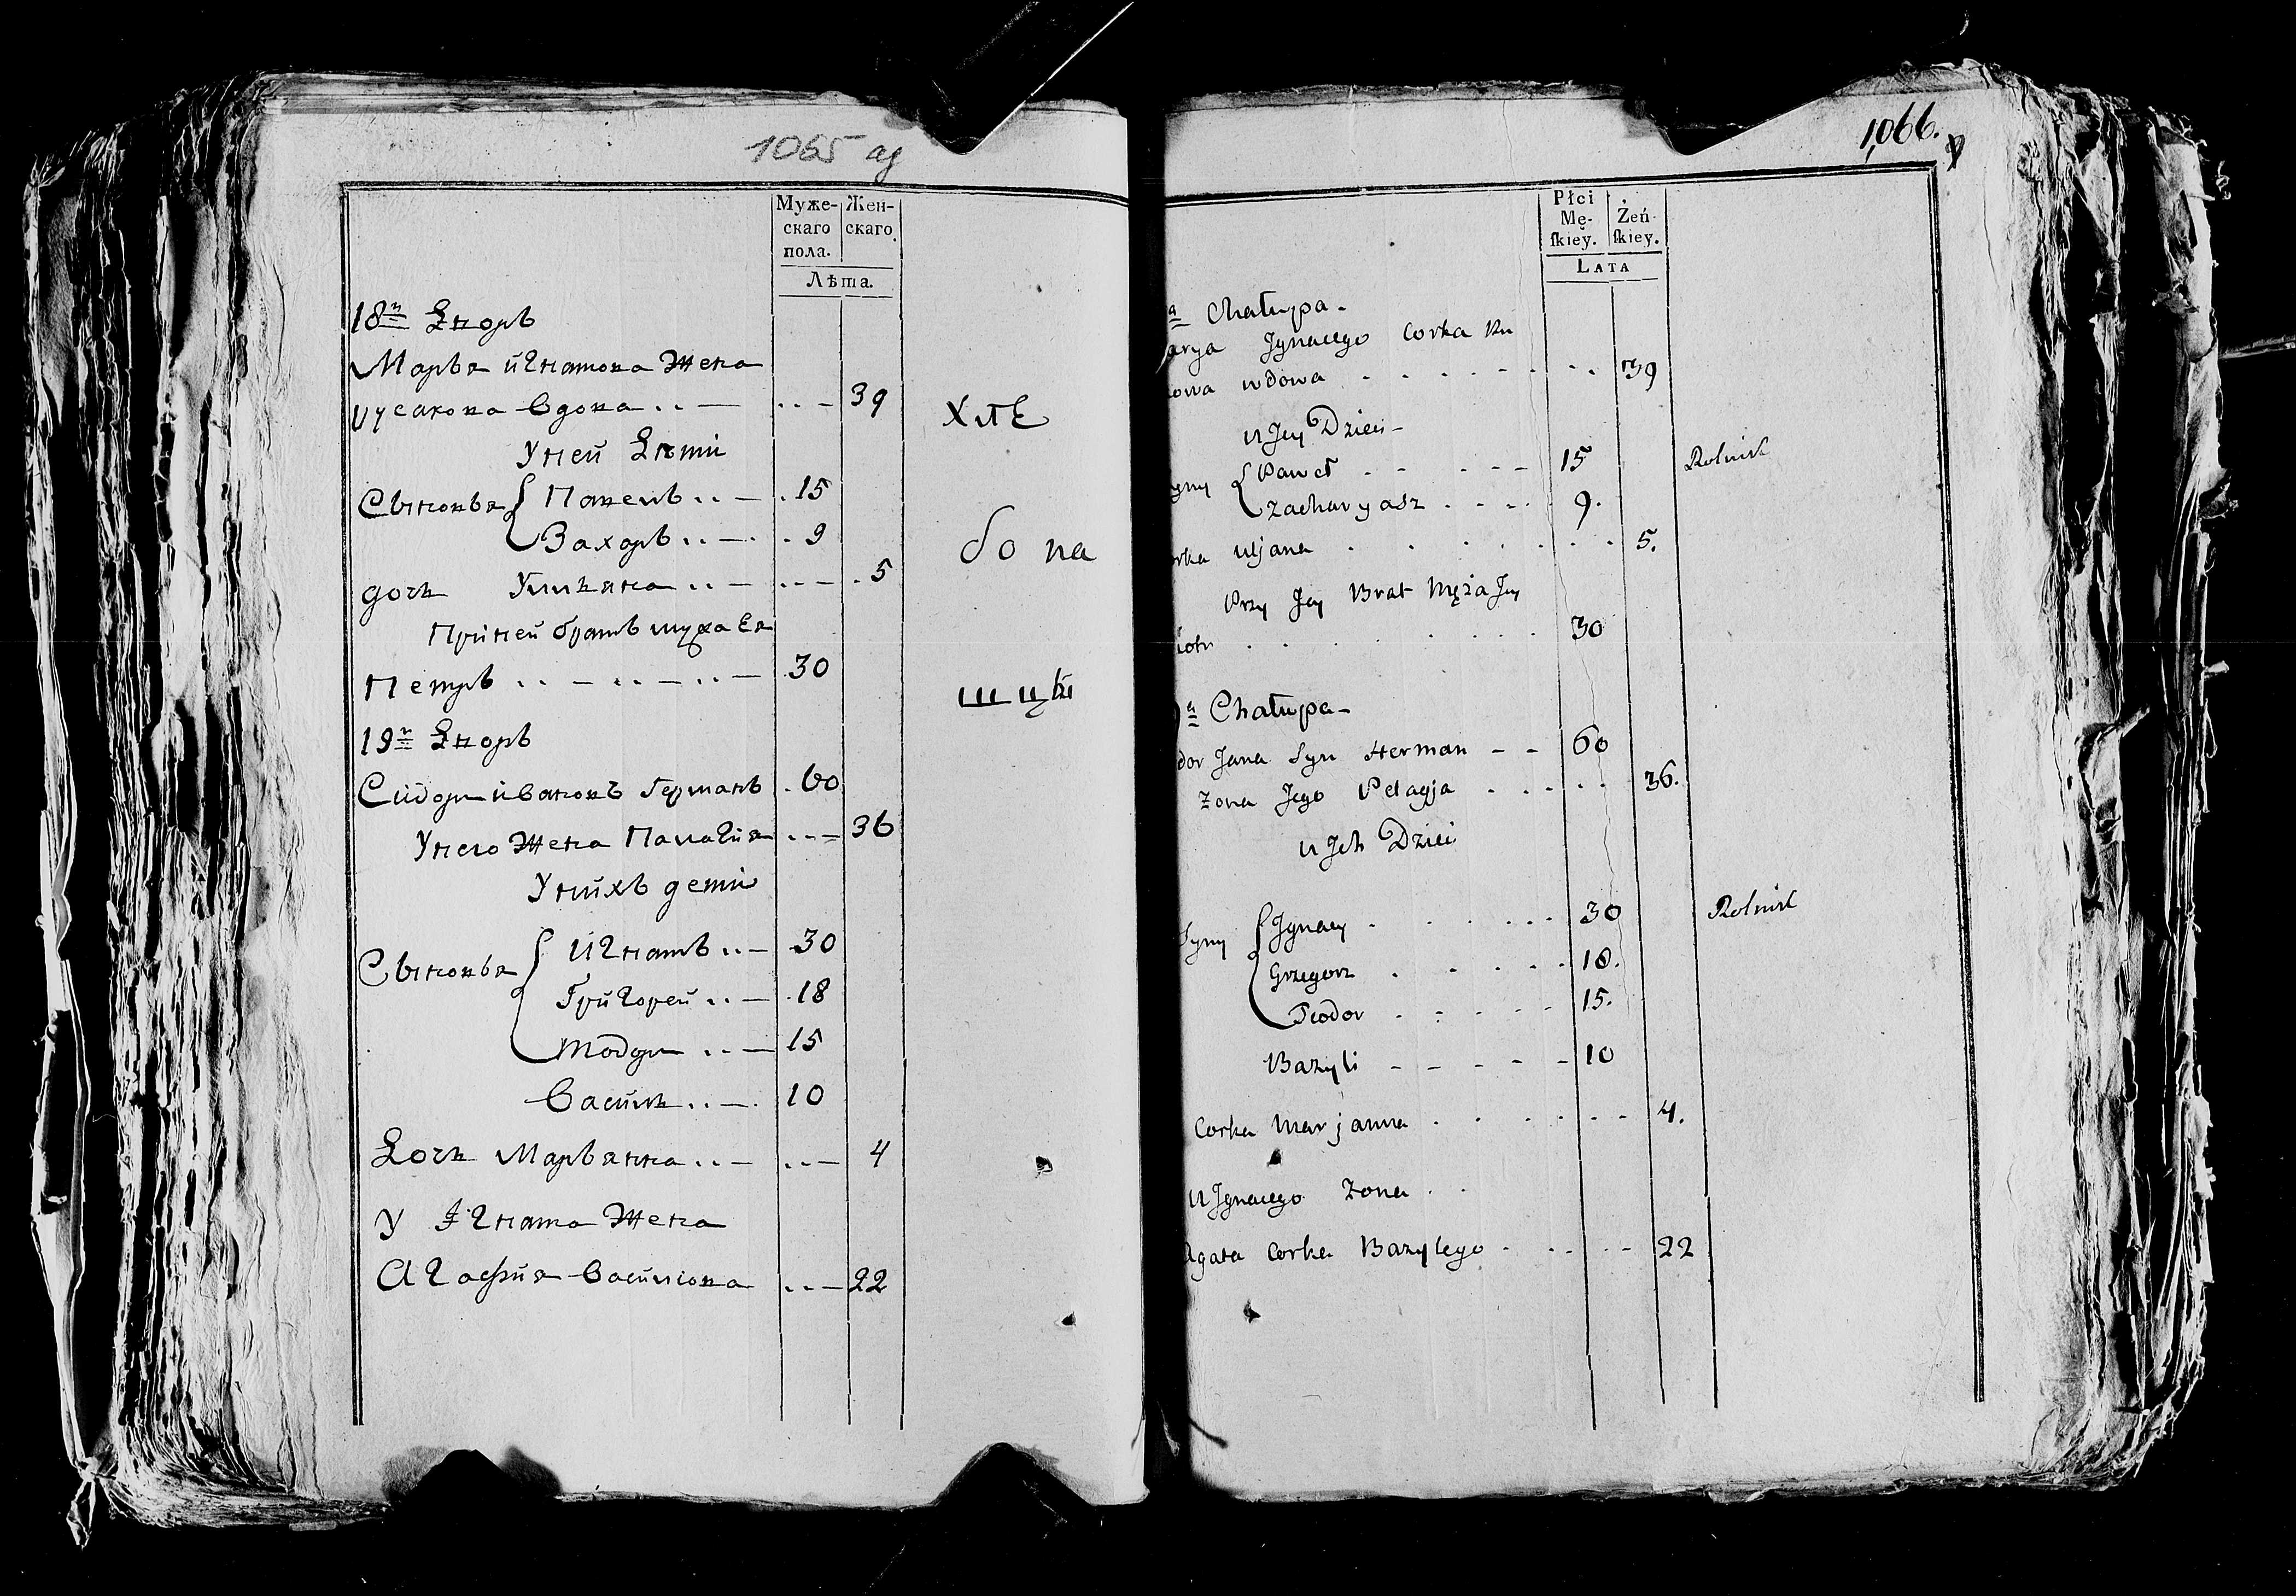 1065 ag
Муже-
скаго
пола.
Жен-
скаго
Лѣта.
18й Дворъ
Марья Игнатова Жена
вдова .. — .. — 39
хлѣ
Уней Дѣти
Сыновья { Павелъ .. — 15
Захаръ .. — 9
бо па
дочь Ульяна .. — .. — 5
Приней братъ мужа Ея
Петръ .. — .. — .. — 30
шцы
19й Дворъ
Сидоръ Ивановъ Германъ 60
Унего Жена Палагия .. — 36
Унихъ дети
Сыновья { Игнатъ .. — 30
Григорей .. — 18
Тодоръ .. — 15
Василь .. — 10
Дочь Марьянна .. — .. — 4
У Игната Жена
Агафия Василiова .. — 22
1066.
Płci
Mę-
ſkiey.
Żeń-
ſkiey.
LATA
a Chałupa -
arya Jgnacego Corka Ku
owa wdowa . . . . . . . 39
u Jey Dzieci -
yny { Paweł . - - - - 15 Rolnik
Zacharyasz . . . . 9.
orka Uljana . . . . . . . 5.
Przy Jey Brat Męża Jey
iotr . . . . . . . 30
a Chałupa -
dor Jana Syn Herman - - 60
Zona Jego Pelagja . . . . . 36.
u Jch Dzieci
Syny { Jgnacy . . . . . . 30 Rolnik
Grzegorz . . . . . 18.
Teodor . . . . . 15.
Bazyli - - - - - 10
Corka Marjanna . . . . . . 4.
U Jgnacego Zona . .
Agata Corka Bazylego . . . . 22